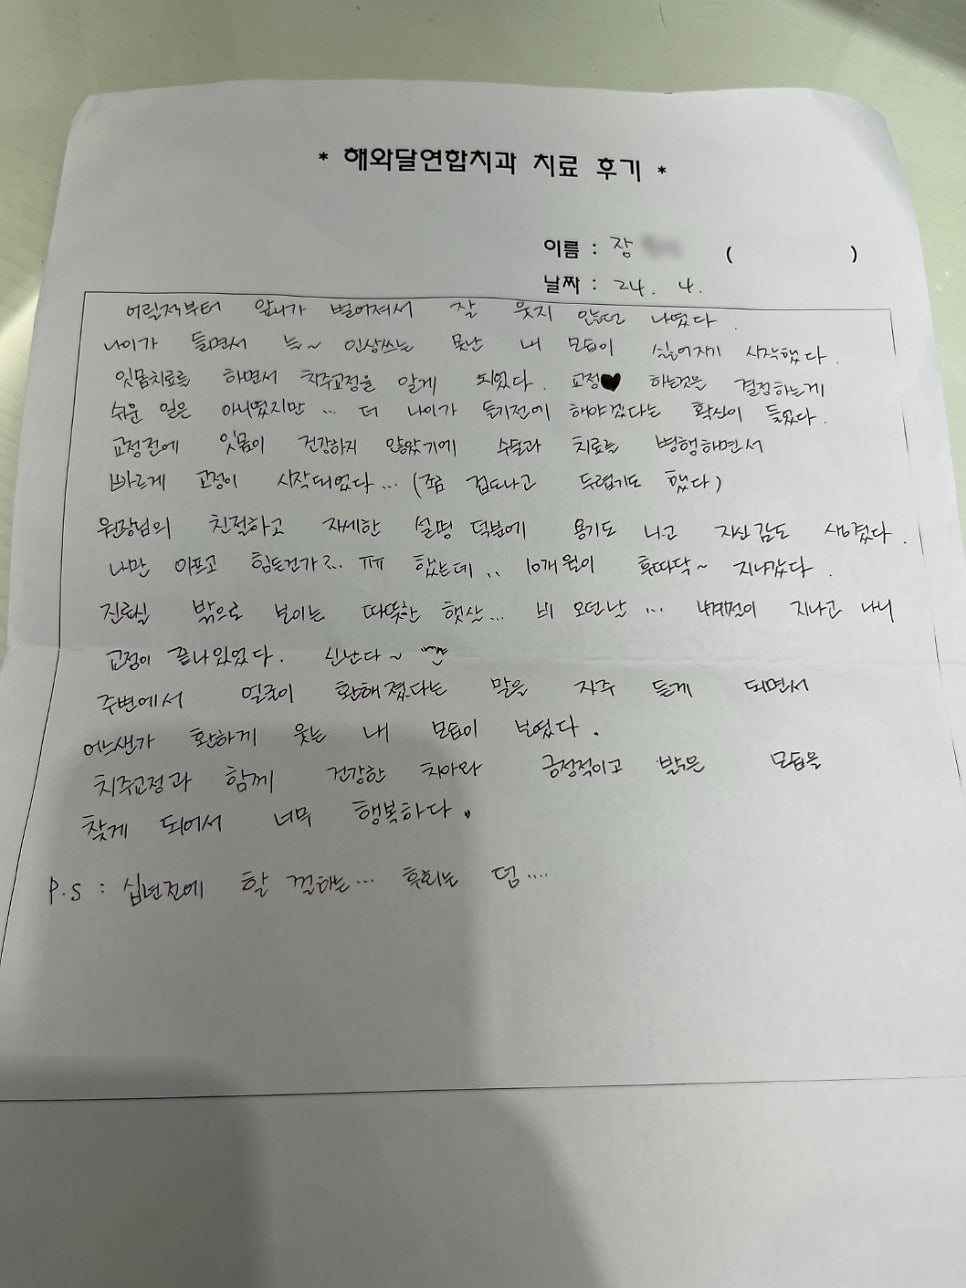 * 해와달연합치과 치료 후기 *
이름 : 장 ( )
날짜 : 24. 4.
어릴적부터 앞니가 벌어져서 잘 웃지 않던 나였다.
나이가 들면서 늘~ 인상쓰는 못난 내 모습이 싫어지기 시작했다.
잇몸치료를 하면서 치주교정을 알게 되었다. 교정♥ 하는것은 결정하는게
쉬운 일은 아니였지만... 더 나이가 들기전에 해야겠다는 확신이 들었다.
교정전에 잇몸이 건강하지 않았기에 수술과 치료를 병행하면서
빠르게 교정이 시작되었다... (조금 겁도나고 두렵기도 했다)
원장님의 친절하고 자세한 설명 덕분에 용기도 나고 자신감도 생겼다.
나만 아프고 힘든건가?.. ㅠㅠ 했는데.. 10개월이 후따닥~ 지나갔다.
진료실 밖으로 보이는 따뜻한 햇살... 비 오던날... 계절이 지나고 나니
교정이 끝나있었다. 신난다~ ^^
주변에서 얼굴이 환해졌다는 말을 자주 듣게 되면서
어느샌가 환하게 웃는 내 모습이 보였다.
치주교정과 함께 건강한 치아와 긍정적이고 밝은 모습을
찾게 되어서 너무 행복하다.
P.S : 십년전에 할 걸하는... 후회는 덤....